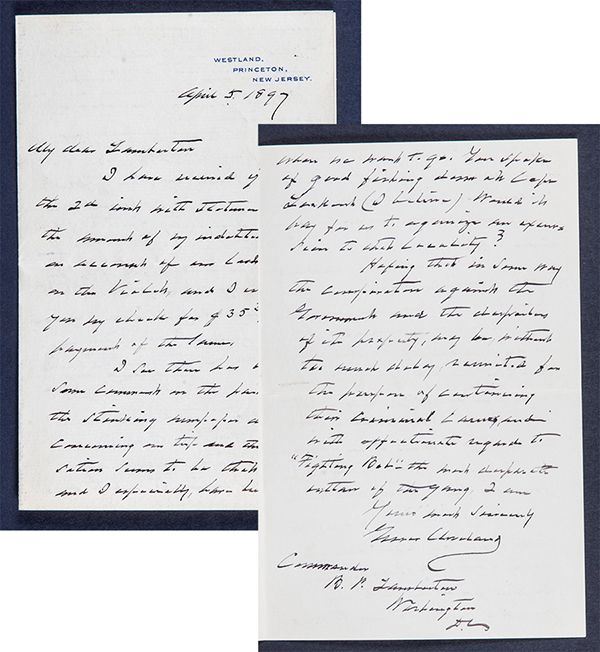 WESTLAND,
PRINCETON,
NEW JERSEY.
April 5. 1897
My dear Lamberton
I have received y
the 2d inst with statem
the amount of my indebted
on account of our
on the Violet, and I
you my check for $35
payment of the same.
I see there has
some comment on the
the stinking newspaper
concerning our trip and the
seems to be that
and I especially, have
when we want to go. You spoke
of good fishing down at Cape
Lookout (I believe). Would it
way for us to organize an excur-
sion to that locality?
Hoping that in some way
the conspiration against the
Government and the despoilers
of its property, may be without
the much delay reunited for
the purpose of continuing
their criminal career, and
with affectionate regards to
"Fighting Bob" the most desperate
of the gang, I am
Yours most sincerely
Grover Cleveland
Commander
B. P. Lamberton
Washington
D.C.